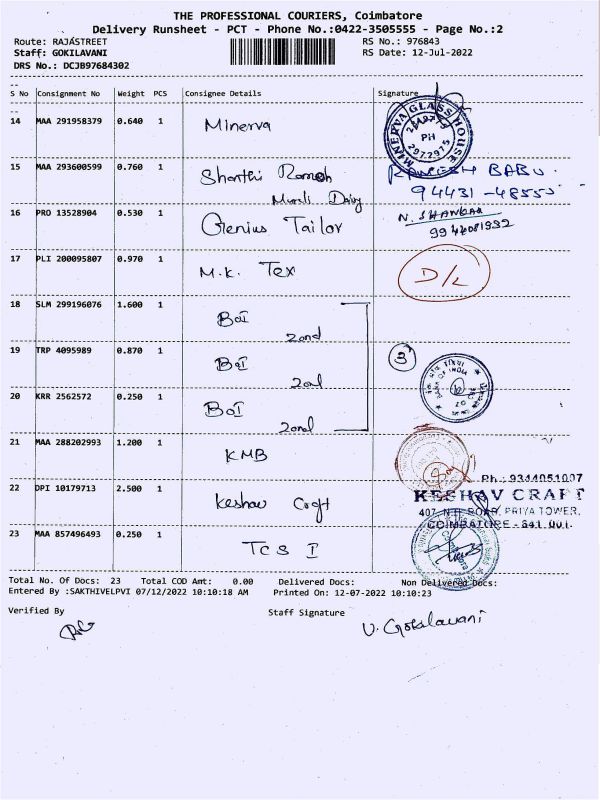 THE PROFESSIONAL COURIERS, Coimbatore
Delivery Runsheet - PCT - Phone No.:0422-3505555 - Page No.:2
Route: RAJASTREET RS No.: 976843
Staff: GOKILAVANI RS Date: 12-Jul-2022
DRS No.: DCJB97684302
S No Consignment No Weight PCS Consignee Details Signature
14 MAA 291958379 0.640 1 Minerva
MINERVA GLASS HOUSE
PH
2972975
15 MAA 293600599 0.760 1 Shanthi Ramesh
Murali Dairy
RAMESH BABU
94431-48555
16 PRO 13528904 0.530 1 Genius Tailor
N. SHANKAR
17 PLI 200095807 0.970 1 M.K. Tex D/L
18 SLM 299196076 1.600 1 BOI
2ond
19 TRP 4095989 0.870 1 BOI
3
BANK OF INDIA
20 KRR 2562572 0.250 1 BOI
2ond
21 MAA 288202993 1.200 1 KMB
Ph.: 9344051007
22 DPI 10179713 2.500 1 Keshav Craft
KESHAV CRAFT
407, N.H ROAD, PRIYA TOWER,
COIMBATORE - 641 001.
23 MAA 857496493 0.250 1 TCS I
Total No. Of Docs: 23 Total COD Amt: 0.00 Delivered Docs: Non Delivered Docs:
Entered By :SAKTHIVELPVI 07/12/2022 10:10:18 AM Printed On: 12-07-2022 10:10:23
Verified By Staff Signature
V. Gokilavani